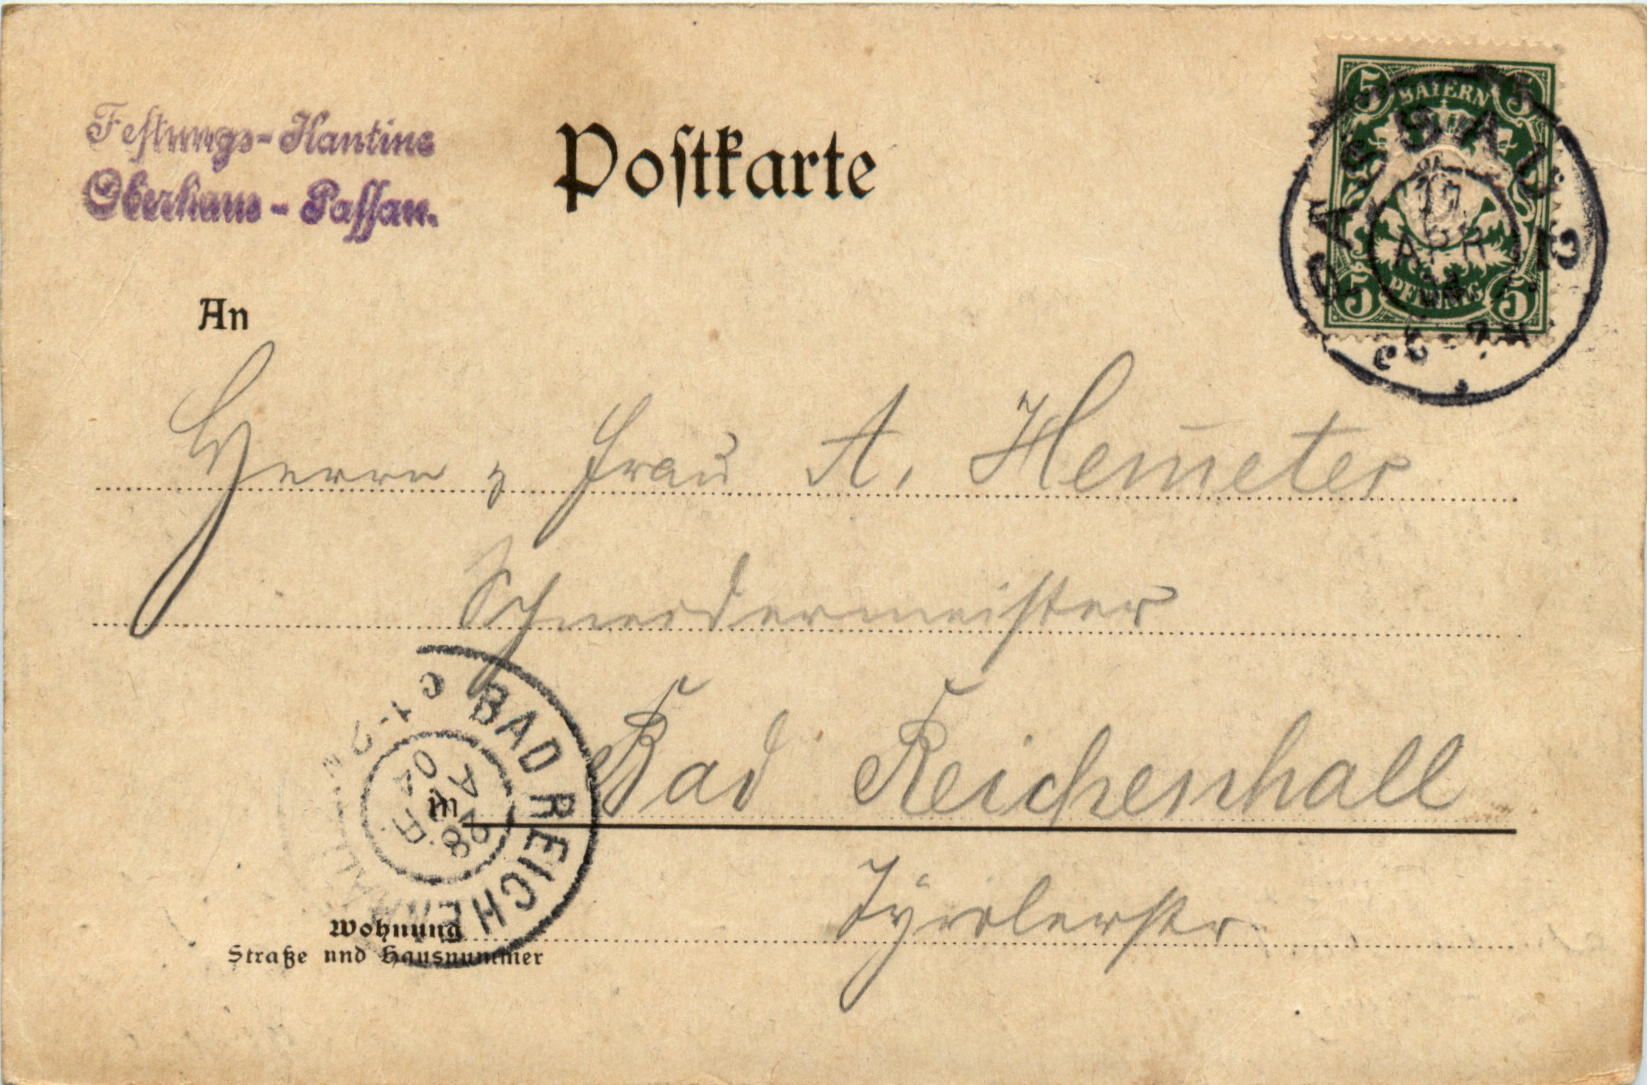 Festungs-Kantine
Oberhaus-Passau.
Postkarte
5 BAYERN 5
5 PFENNIG 5
PASSAU 2
APR
An
Herrn & Frau A. Hemmeter
Schneidermeister
in Bad Reichenhall
BAD REICHENHALL
28
APR.
04
Tyrolerstr.
Wohnung
Straße und Hausnummer